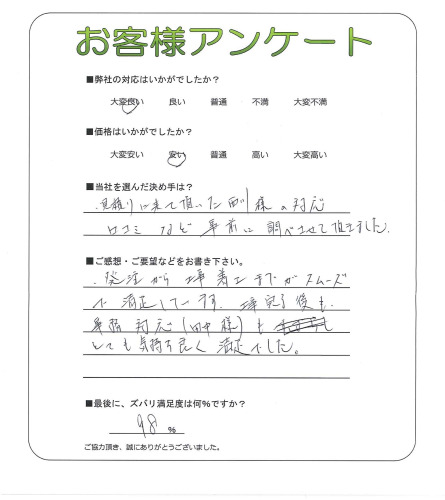 お客様アンケート
■弊社の対応はいかがでしたか？
大変良い 良い 普通 不満 大変不満
■価格はいかがでしたか？
大変安い 安い 普通 高い 大変高い
■当社を選んだ決め手は？
見積りに来て頂いた 様の対応
口コミなど事前に調べさせて頂きました。
■ご感想・ご要望などをお書き下さい。
発注から工事着工までがスムーズ
で満足しています。工事完了後も
事務対応(田中様)も
とても気持ち良く満足でした。
■最後に、ズバリ満足度は何%ですか？
98 %
ご協力頂き、誠にありがとうございました。